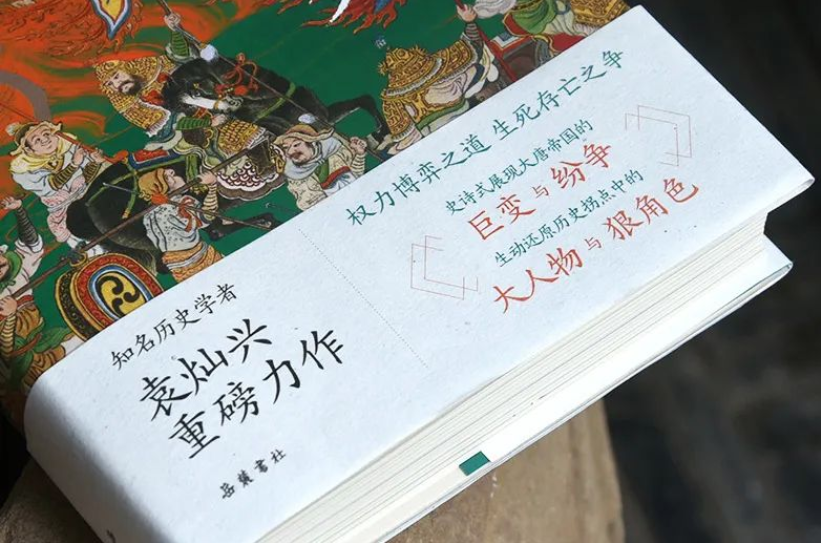 权力博弈之道 生死存亡之争
史诗式展现大唐帝国的
巨变与纷争
生动还原历史拐点中的
大人物与狠角色
知名历史学者
袁灿兴
重磅力作
岳麓书社